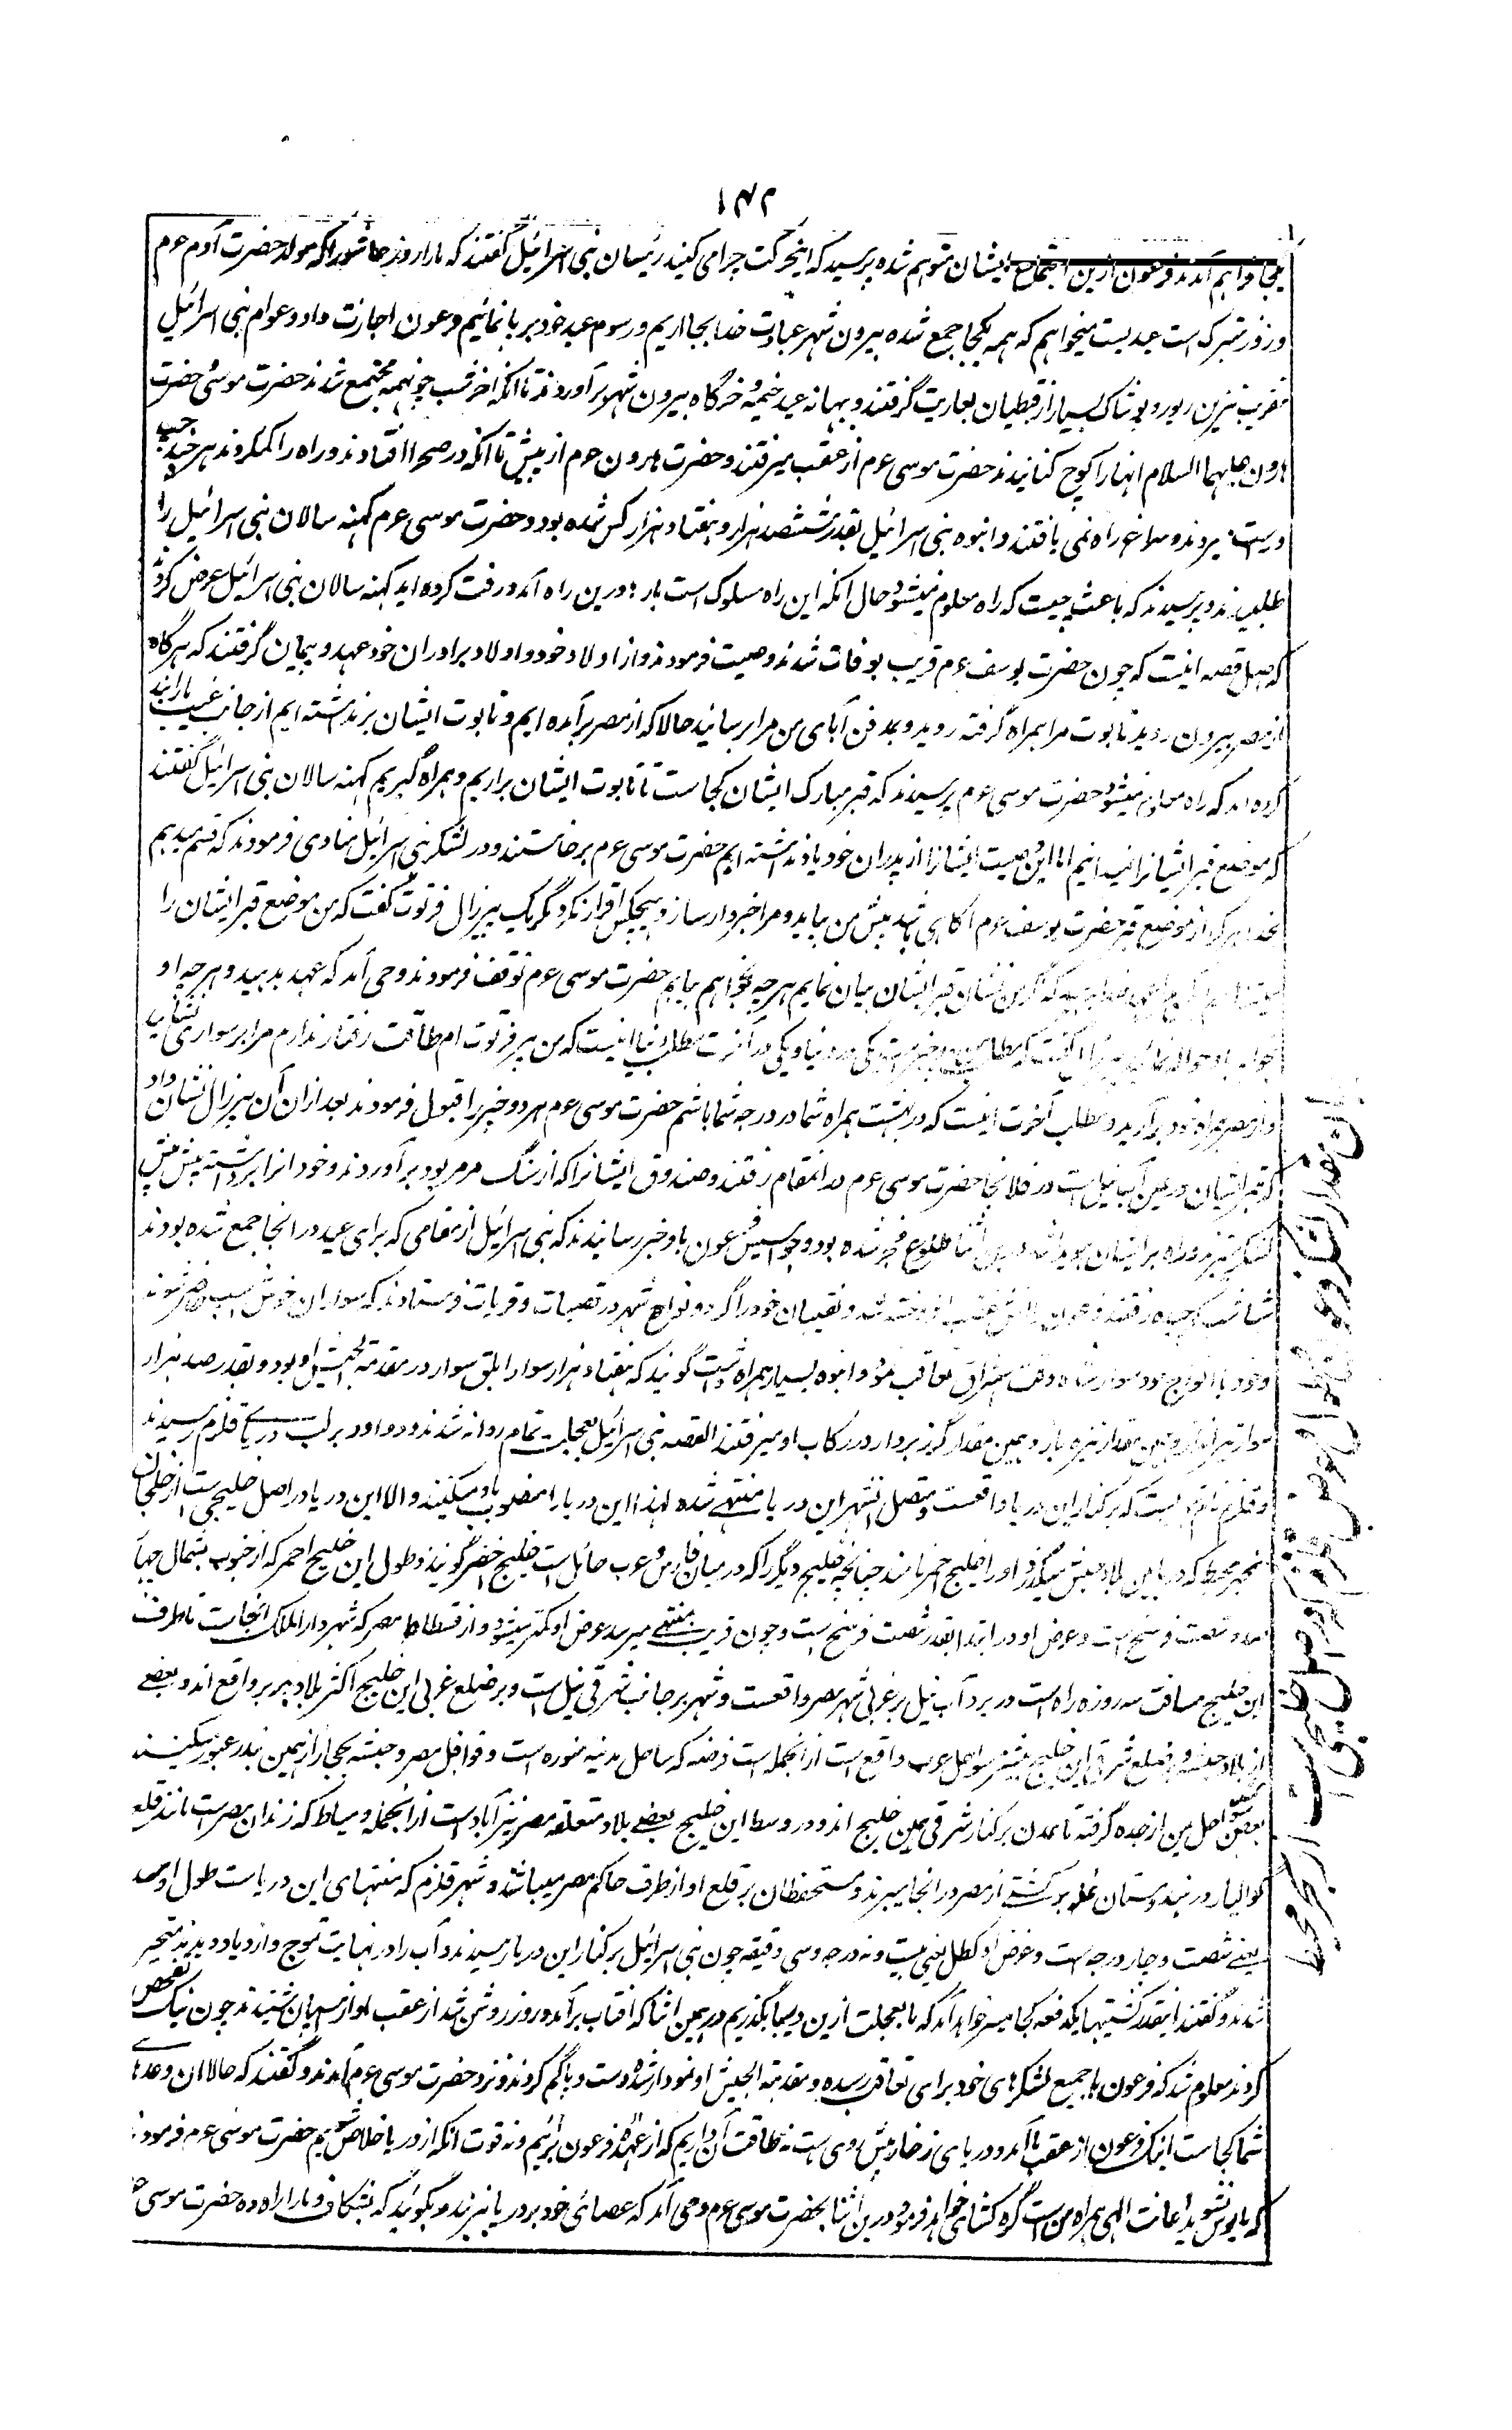 ۱۴۲
یکجا فراهم آمدند فرعون ازین اجتماع ایشان متوهم شده پرسید که اینحرکت چرا می کنید رئیسان بنی اسرائیل گفتند که ما را روز عاشورا که مولد حضرت آدم عم
و روز متبرک است عید یست میخواهم که همه یکجا جمع شده بیرون شهر عبادت خدا بجا اریم و رسوم عید خود بر پا نمائیم فرعون اجازت داد و عوام بنی اسرائیل
تقریب تزین زیور و پوشاک بسیار از قبطیان بعاریت گرفتند و ببهانه عید خیمه و خرگاه بیرون شهر بر آوردند تا انکه اخر شب چو نهمه مجتمع شدند حضرت موسی و حضرت
هارون علیهما السلام انها را کوچ کنانیدند حضرت موسی عم از عقب میرفتند و حضرت هارون عم از پیش تا انکه در صحرا افتادند و راه را گم کردند هر چند چپ
و راست میروند و سراغ راه نمی یافتند و انبوه بنی اسرائیل بقدر ششصد هزار و هفتاد هزار کس شده بود و حضرت موسی عم کهنه سالان بنی اسرائیل را
طلبیدند و پرسیدند که باعث چیست که راه معلوم نمیشود و حال انکه این راه مسلوک است بارها درین راه آمد و رفت کرده اید کهنه سالان بنی اسرائیل عرض کردند
که اصل قصه اینست که چون حضرت یوسف عم قریب بوفات شدند وصیت فرمودند و از اولاد خود و اولاد برادران خود عهد و پیمان گرفتند که هر گاه
از مصر بیرون روید تابوت مرا همراه گرفته روید و بمدفن آبای من مرا برسانید حالا که از مصر برآمده ایم و تابوت ایشان برنداشته ایم از جانب غیب ما را بند
کرده اند که راه معلوم نمیشود حضرت موسی عم پرسیدند که قبر مبارک ایشان کجاست تا تابوت ایشان براریم و همراه گیریم کهنه سالان بنی اسرائیل گفتند
که موضع قبر ایشانرا نمیدانیم اما این وصیت ایشانرا از پدران خود یاد داشته ایم حضرت موسی عم برخاستند و در لشکر بنی اسرائیل منادی فرمودند که قسم میدهم
بخدا هر که از موضع قبر حضرت یوسف عم آگاهی باشد پیش من بیاید و مرا خبردار سازد هیچکس اقرار نکرد مگر یک پیرزال فرتوت گفت که من موضع قبر ایشان را
که اگر من نشان قبر ایشان بیان نمایم هر چه بخواهم بیابم حضرت موسی عم توقف فرمودند وحی آمد که عهد بدهید و هر چه او
بخواهد باو حواله نمائید پیرزال گفت که مطلب من دو چیز است یکی در دنیا و یکی در آخرت مطلب دنیا اینست که من پیر فرتوت ام طاقت رفتار ندارم مرا بر سواری نشانید
و از مصر همراه خود برآرید و مطلب آخرت اینست که در بهشت همراه شما در درجه شما باشم حضرت موسی عم هر دو چیز را قبول فرمودند بعد ازان آن پیرزال نشان داد
که قبر ایشان در عین آب نیل است در فلانجا حضرت موسی عم در انمقام رفتند و صندوق ایشانرا که از سنگ مرمر بود برآوردند و خود انرا برداشته پیش پیش
لشکر میرفتند و راه بر ایشان هویدا شد درین اثنا طلوع فجر شده بود و جواسیس فرعون باو خبر رسانیدند که بنی اسرائیل از مقامی که برای عید در انجا جمع شده بودند
شباشب کوچیده رفتند فرعون را آتش غضب افروخته شد و نقیبان خود را گرد و نواح شهر در قصبات و قریات فرستادند که سواران خوش اسپ حاضر شوند
و خود با افواج خود سوار شده وقت اشراق تعاقب نمود و انبوه بسیار همراه داشت گویند که هفتاد هزار سوار ابلق سوار در مقدمة الجیش او بود و بقدر صد هزار
سوار تیرانداز و همین مقدار نیزه باز و همین مقدار گرز بردار در رکاب او میرفتند القصه بنی اسرائیل بعجلت تمام روانه شدند و دوادو بر لب دریای قلزم رسیدند
و قلزم نام شهریست که بر کنار این دریا واقعست و متصل انشهر این دریا منتهی شده لهذا این دریا را منسوب باو میکنند والا این دریا در اصل خلیجی است از خلجان
بحر محیط که در مابین بلاد حبش میگذرد و او را خلیج احمر نامند چنانچه خلیج دیگر را که در میان فارس و عرب حائل است خلیج اخضر گویند و طول این خلیج احمر که از جنوب بشمال چهار
صد و شصت فرسخ است و عرض او در ابتدا بقدر شصت فرسخ است و چون قریب بمنتهی میرسد عرض او کمتر میشود و از فسطاط مصر که شهر دار الملک انجاست تا طرف
این خلیج مسافت سه روزه راه است در برد آب نیل بر غربی شهر مصر واقعست و شهر بر جانب شرقی نیل است و بر ضلع غربی این خلیج اکثر بلاد بربر واقع اند و بعضی
از بلاد حبشه و بر ضلع شرقی این خلیج بیشتر سواحل عرب واقع است از انجمله است فرضه که ساحل مدینه منوره است و قوافل مصر و حبشه بحجاز از همین بندر عبور میکنند
بعضی سواحل یمن از جده گرفته تا عدن بر کنار شرقی همین خلیج اند و در وسط این خلیج بعضی بلاد متعلقه مصر نیز آباد است از انجمله دمیاط که زندان مصر ست مانند قلعه
گوالیار در هندوستان غله بر کشتی از مصر در انجا میبرند و مستحفظان بر قلعه او از طرف حاکم مصر میباشند و شهر قلزم که منتهای این دریا ست طول او سد
یعنی شصت و چار درجه است و عرض او کطل یعنی بیست و نه درجه و سی دقیقه چون بنی اسرائیل بر کنار این دریا رسیدند و آب را در نهایت تموج و ازدیاد دیدند متحیر
شدند و گفتند اینقدر کشتیها یکدفعه کجا میسر خواهد آمد که ما بعجلت ازین دریا بگذریم در همین اثنا که افتاب برآمد و روز روشن شد از عقب اواز اسپان شنیدند چون نیک تفحص
کردند معلوم شد که فرعون با جمیع لشکرهای خود برای تعاقب رسیده و مقدمة الجیش او نمودار شده دست و پا گم کردند و نزد حضرت موسی عم آمدند و گفتند که حالا ان وعدهای
شما کجاست اینک فرعون از عقب ما آمد و دریای زخار پیش روی است نه طاقت آن داریم که از عهده فرعون برائیم و نه قوت انکه از دریا خلاص شویم حضرت موسی عم فرمودند
که مایوس نشوید اعانت الهی همراه من است گره کشائی خواهد فرمود درین اثنا بحضرت موسی عم وحی آمد که عصائی خود بر دریا بزند و بگوئید که بشگاف و ما را راه ده حضرت موسی